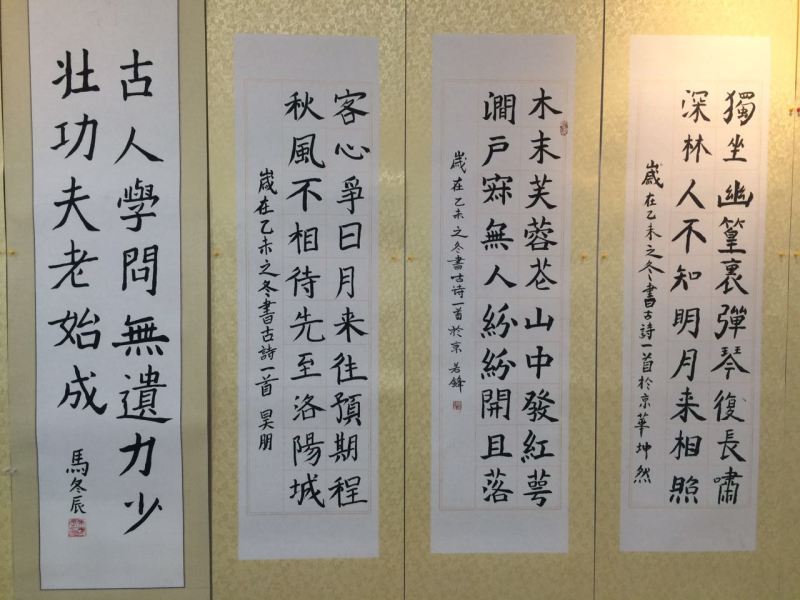 獨坐幽篁裏彈琴復長嘯
深林人不知明月来相照
歲在乙未之冬書古詩一首於京華坤然
木末芙蓉花山中發紅萼
澗戸寂無人紛紛開且落
歲在乙未之冬書古诗一首於京若鋒
客心爭日月来往預期程
秋風不相待先至洛陽城
歲在乙未之冬書古詩一首 昊朋
古人學問無遺力少
壯功夫老始成
馬冬辰